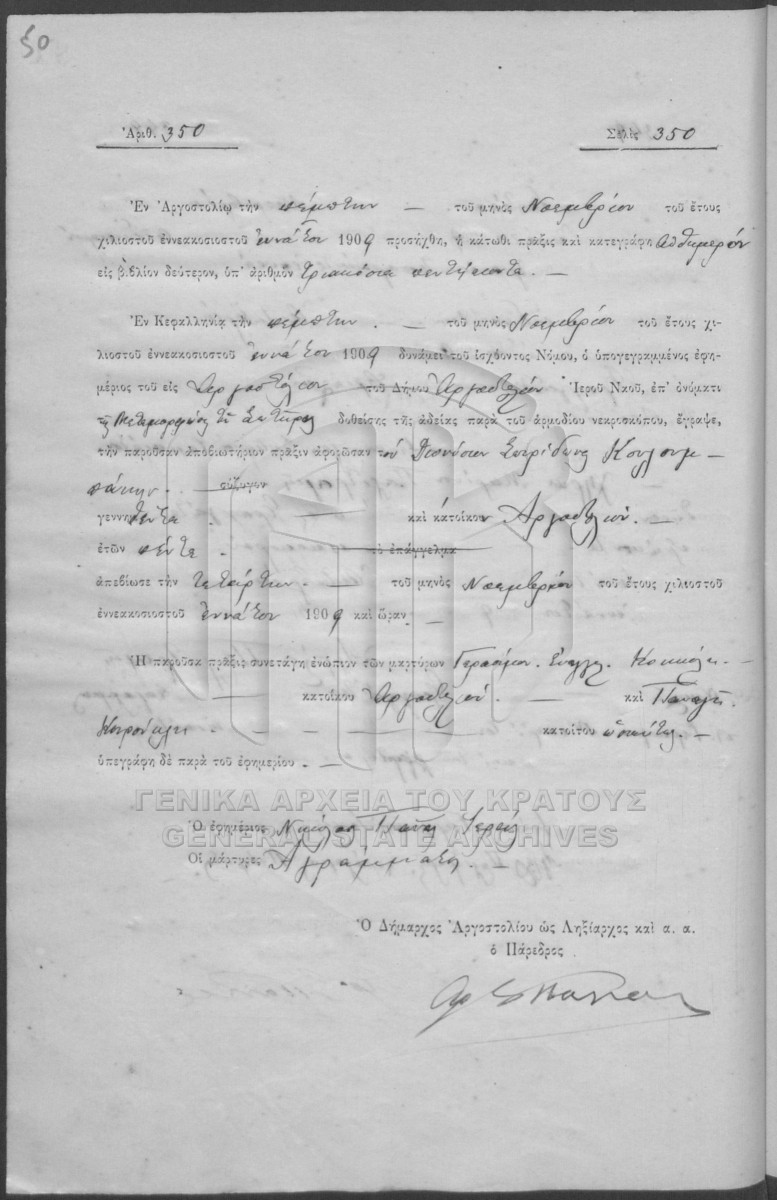 50
Ἀριθ. 350
Σελὶς 350
Ἐν Ἀργοστολίῳ τὴν πέμπτην — τοῦ μηνὸς Νοεμβρίου τοῦ ἔτους
χιλιοστοῦ ἐννεακοσιοστοῦ ἐννάτου 1909 προσήχθη, ἡ κάτωθι πρᾶξις καὶ κατεγράφη αὐθημερόν
εἰς βιβλίον δεύτερον, ὑπ' ἀριθμὸν τριακόσια πεντήκοντα. —
Ἐν Κεφαλληνίᾳ τὴν πέμπτην. — τοῦ μηνὸς Νοεμβρίου τοῦ ἔτους χι-
λιοστοῦ ἐννεακοσιοστοῦ ἐννάτου 1909 δυνάμει τοῦ ἰσχύοντος Νόμου, ὁ ὑπογεγραμμένος ἐφη-
μέριος τοῦ εἰς Ἀργοστόλιον τοῦ Δήμου Ἀργοστολίου Ἱεροῦ Ναοῦ, ἐπ' ὀνόματι
δοθείσης τῆς ἀδείας παρὰ τοῦ ἁρμοδίου νεκροσκόπου, ἔγραψε,
τὴν παροῦσαν ἀποβιωτήριον πρᾶξιν ἀφορῶσαν τὸν Διονύσιον Σπυρίδωνος
σύζυγον
γεννηθέντα — καὶ κάτοικον Ἀργοστολίου. —
ἐτῶν πέντε. τὸ ἐπάγγελμα
ἀπεβίωσε τὴν τετάρτην. — τοῦ μηνὸς Νοεμβρίου τοῦ ἔτους χιλιοστοῦ
ἐννεακοσιοστοῦ ἐννάτου 1909 καὶ ὥραν —
Ἡ παροῦσα πρᾶξις συνετάγη ἐνώπιον τῶν μαρτύρων Γερασίμου
— κατοίκου Ἀργοστολίου. — καὶ Παναγῆ
— — — — κατοίκου ὡσαύτως. —
ὑπεγράφη δὲ παρὰ τοῦ ἐφημερίου. —
ΓΕΝΙΚΑ ΑΡΧΕΙΑ ΤΟΥ ΚΡΑΤΟΥΣ
Ὁ ἐφημέριος Νικόλαος Ἱερεύς
GENERAL STATE ARCHIVES
Οἱ μάρτυρες Ἀγράμματοι. —
Ὁ Δήμαρχος Ἀργοστολίου ὡς Ληξίαρχος καὶ α. α.
ὁ Πάρεδρος